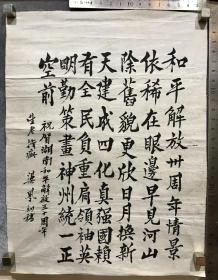 和平解放卅周年情景
依稀在眼邊早見河山
除舊貌更欣日月換新
天建成四化真强國賴
有全民負重肩領袖英
明勤策畫神州統一正
空前
祝賀湖南和平解放三十周年